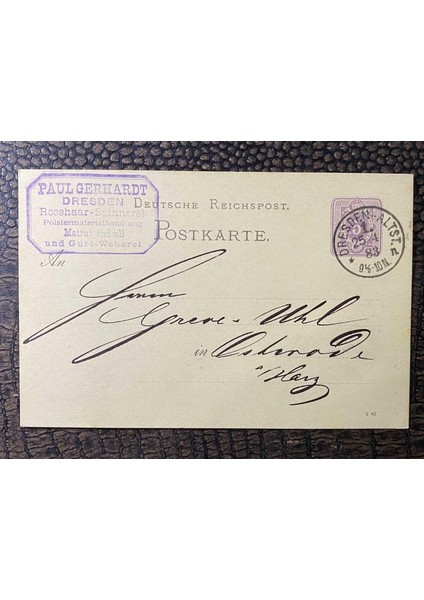 PAUL GERHARDT
DRESDEN
Rosshaar-Spinnerei
Polstermaterialhandlung
Matratzendrell
und Gurt-Weberei
DEUTSCHE REICHSPOST.
POSTKARTE.
DRESDEN-ALTST.
1.
25 4
83
9¼-10N.
An
Herrn
Greve-Uhl
in Osterode
a/Harz